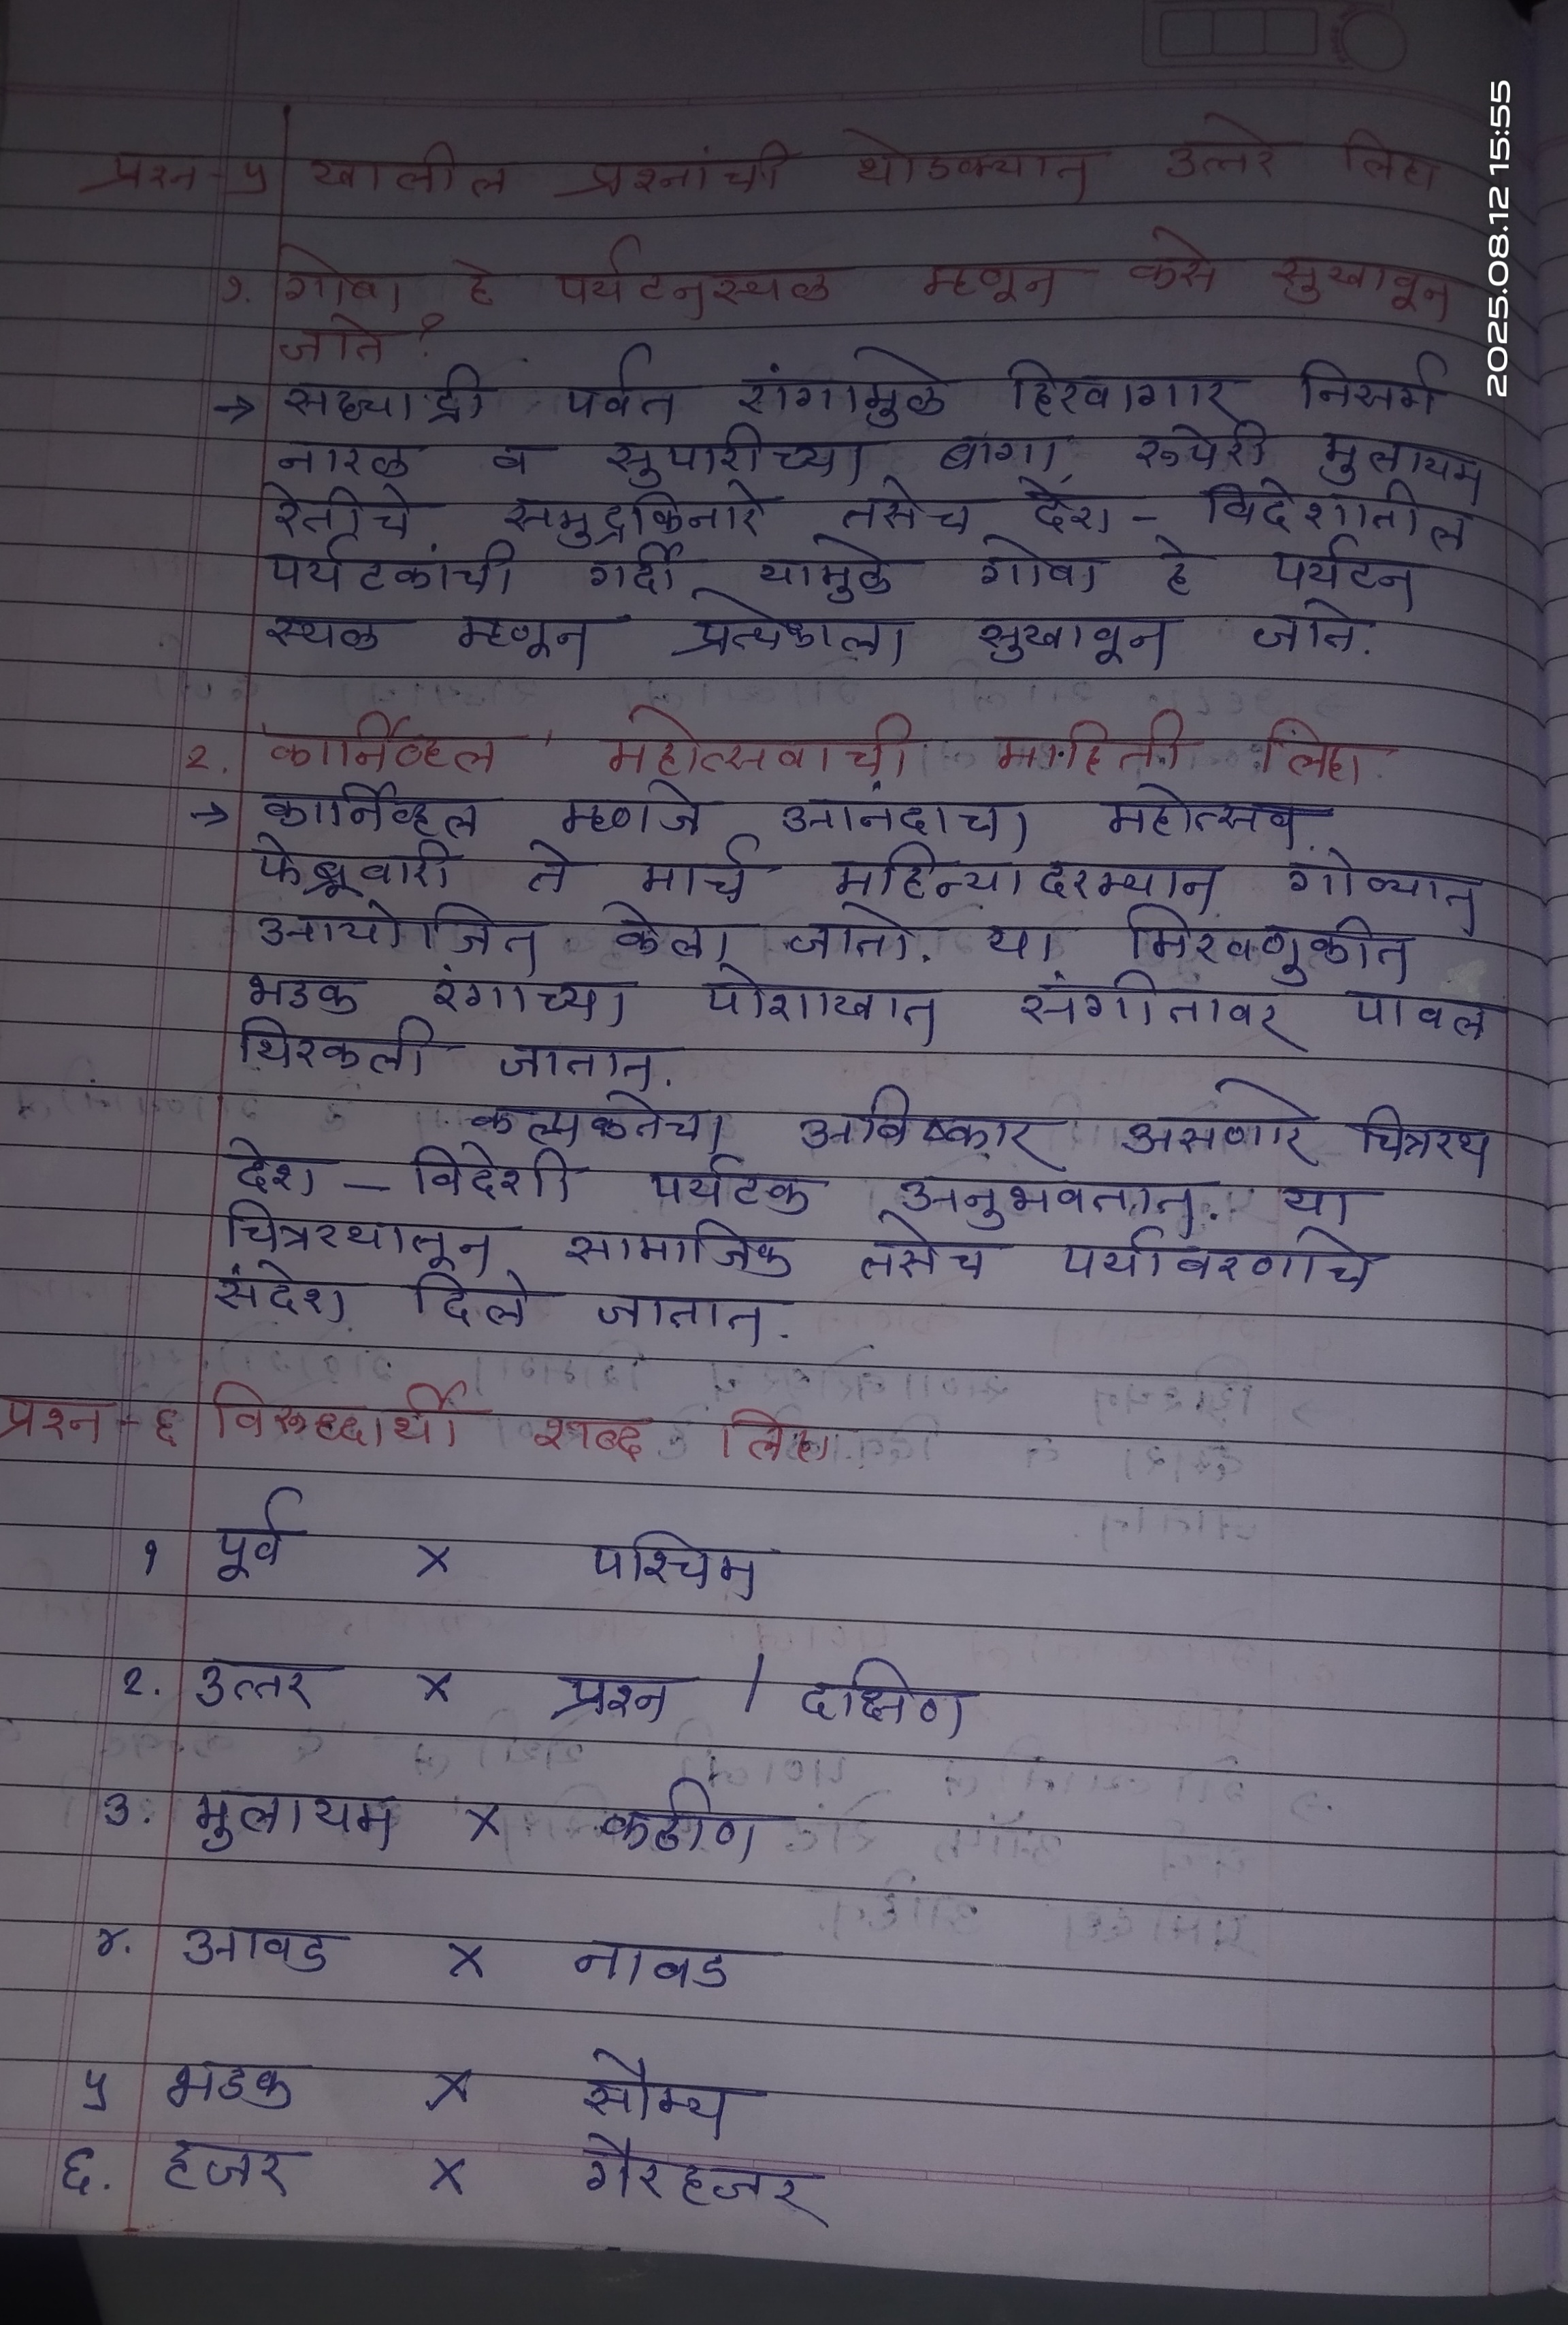 प्रश्न-५ खालील प्रश्नांची थोडक्यात उत्तरे लिहा
१. गोवा हे पर्यटनस्थळ म्हणून कसे सुखावून
जाते?
→ सह्याद्री पर्वत रांगामुळे हिरवागार निसर्ग
नारळ व सुपारीच्या बागा, रूपेरी मुलायम
रेतीचे समुद्रकिनारे तसेच देश - विदेशातील
पर्यटकांची गर्दी यामुळे गोवा हे पर्यटन
स्थळ म्हणून प्रत्येकाला सुखावून जाते.
२. 'कार्निव्हल' महोत्सवाची माहिती लिहा
→ कार्निव्हल म्हणजे आनंदाचा महोत्सव.
फेब्रूवारी ते मार्च महिन्यादरम्यान गोव्यात
आयोजित केला जातो. या मिरवणुकीत
भडक रंगाच्या पोशाखात संगीतावर पावल
थिरकली जातात.
कल्पकतेचा आविष्कार असणारे चित्ररथ
देश - विदेशी पर्यटक अनुभवतात. या
चित्ररथातून सामाजिक तसेच पर्यावरणाचे
संदेश दिले जातात.
प्रश्न-६ विरूद्धार्थी शब्द लिहा
१ पूर्व x पश्चिम
२. उत्तर x प्रश्न / दक्षिण
३. मुलायम x कठीण
४. आवड x नावड
५ भडक x सौम्य
६. हजर x गैरहजर
2025.08.12 15:55